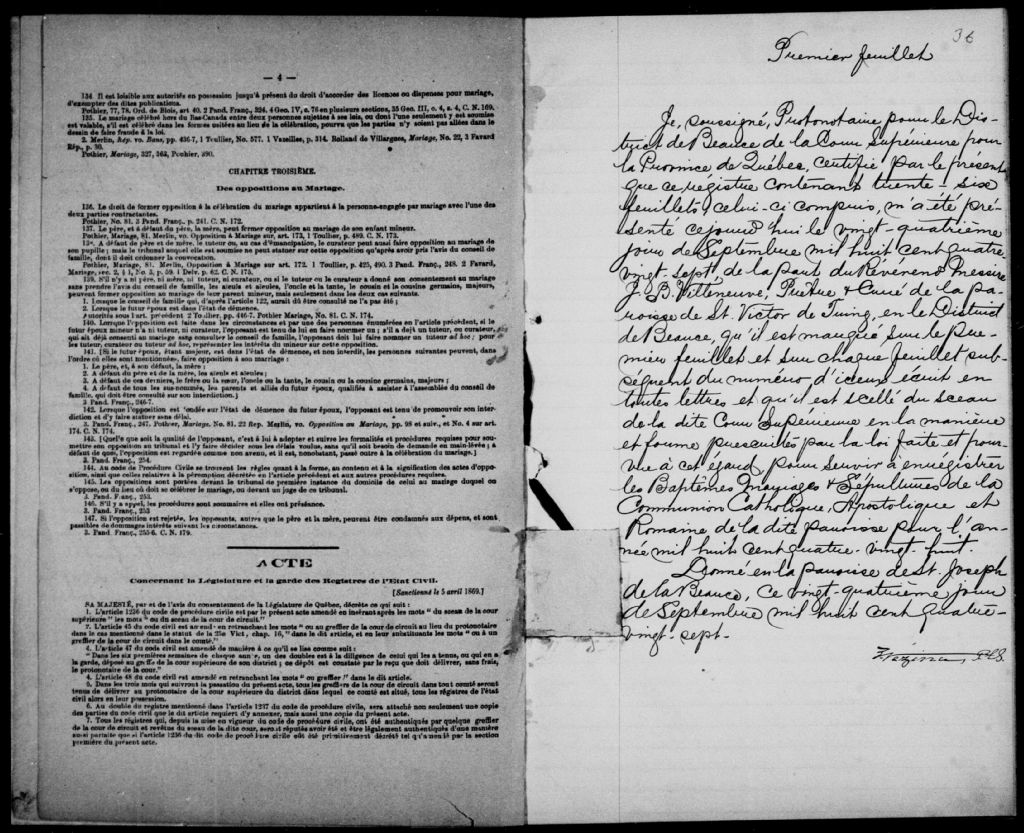 — 4 —
134. Il est loisible aux autorités en possession jusqu'à présent du droit d'accorder des licences ou dispenses pour mariage,
d'exempter des dites publications.
Pothier, 77, 78. Ord. de Blois, art 40. 2 Pand. Franç., 324. 4 Geo. IV, c. 76 en plusieurs sections, 35 Geo. III, c. 4, s. 4, C. N. 169.
135. Le mariage célébré hors du Bas-Canada entre deux personnes sujettes à ses lois, ou dont l'une seulement y est soumise
est valable, s'il est célébré dans les formes usitées au lieu de la célébration, pourvu que les parties n'y soient pas allées dans le
dessin de faire fraude à la loi.
2. Merlin, Rép. vo. Bans, pp. 436-7, 1 Toullier, No. 577. 1 Vazeilles, p. 314. Rolland de Villargues, Mariage, No. 22, 3 Favard
Rép., p. 30.
Pothier, Mariage, 327, 363, Pothier, 390.
CHAPITRE TROISIÈME.
Des oppositions au Mariage.
136. Le droit de former opposition à la célébration du mariage appartient à la personne engagée par mariage avec l'une des
deux parties contractantes.
Pothier, No. 81. 3 Pand. Franç., p. 241. C. N. 172.
137. Le père, et à défaut du père, la mère, peut former opposition au mariage de son enfant mineur.
Pothier, Mariage, 81. Merlin, vo. Opposition à Mariage sur art. 173, 1 Toullier, p. 489. C. N. 173.
A défaut de père et de mère, le tuteur ou, au cas d'émancipation, le curateur peut aussi faire opposition au mariage de
son pupille ; mais le tribunal auquel elle est soumise ne peut statuer sur cette opposition qu'après avoir pris l'avis du conseil de
famille, dont il doit ordonner la convocation.
Pothier, Mariage, 81. Merlin, Opposition à Mariage sur art. 172. 1 Toullier, p. 425, 490. 3 Pand. Franç., 248. 2 Favard,
Mariage, sec. 2, § 1, No. 5, p. 59. 1 Delv. p. 62. C. N. 175.
139. S'il n'y a ni père, ni mère, ni tuteur, ni curateur, ou si le tuteur ou le curateur a donné son consentement au mariage
sans prendre l'avis du conseil de famille, les aïeuls et aïeules, l'oncle et la tante, le cousin et la cousine germains, majeurs,
peuvent former opposition au mariage de leur parent mineur, mais seulement dans les deux cas suivants.
1. Lorsque le conseil de famille qui, d'après l'article 122, aurait dû être consulté ne l'a pas été ;
2. Lorsque le futur époux est dans l'état de démence.
Autorités sous l'art. précédent 2 Toullier, pp. 446-7. Pothier Mariage, No. 81. C. N. 174.
140. Lorsque l'opposition est faite dans les circonstances et par une des personnes énumérées en l'article précédent, si le
futur époux mineur n'a ni tuteur, ni curateur, l'opposant est tenu de lui en faire nommer un ; s'il a déjà un tuteur, ou curateur,
qui ait déjà consenti au mariage sans consulter le conseil de famille, l'opposant doit lui faire nommer un tuteur ad hoc ; pour
les tuteur, curateur ou tuteur ad hoc, représenter les intérêts du mineur sur cette opposition.
141. [Si le futur époux, étant majeur, est dans l'état de démence, et non interdit, les personnes suivantes peuvent, dans
l'ordre où elles sont mentionnées, faire opposition à son mariage :
1. Le père, et, à son défaut, la mère ;
2. A défaut du père et de la mère, les aïeuls et aïeules ;
3. A défaut de ces derniers, le frère ou la sœur, l'oncle ou la tante, le cousin ou la cousine germains, majeurs ;
4. A défaut de tous les sus-nommés, les parents et alliés du futur époux, qualifiés à assister à l'assemblée du conseil de
famille, qui doit être consulté sur son interdiction.)
3 Pand. Franç., 246-7.
142. Lorsque l'opposition est fondée sur l'état de démence du futur époux, l'opposant est tenu de promouvoir son inter-
diction et d'y faire statuer sans délai.
3. Pand. Franç., 247. Pothier, Mariage, No. 81. 22 Rep. Merlin, vo. Opposition au Mariage, pp. 98 et suiv., et No. 4 sur art.
174. C. N. 174.
143. [Quel'e que soit la qualité de l'opposant, c'est à lui à adopter et suivre les formalités et procédures requises pour sou-
mettre son opposition au tribunal et l'y faire décider sous les délais voulus, sans qu'il soit besoin de demande en main-levée ; à
défaut de quoi, l'opposition est regardée comme non avenu, et il est, nonobstant, passé outre à la célébration du mariage.]
3. Pand. Franç., 254.
144. Au code de Procédure Civile se trouvent les règles quant à la forme, au contenu et à la signification des actes d'oppo-
sition, ainsi que celles relatives à la péremption décrétée en l'article précédent et aux autres procédures requises.
145. Les oppositions sont portées devant le tribunal de première instance du domicile de celui au mariage duquel on
s'oppose, ou du lieu où doit se célébrer le mariage, ou devant un juge de ce tribunal.
3. Pand. Franç., 253.
146. S'il y a appel, les procédures sont sommaires et elles ont préséance.
3. Pand. Franç., 253
147. Si l'opposition est rejetée, les opposants, autres que le père et la mère, peuvent être condamnés aux dépens, et sont
passibles de dommages intérêts suivant les circonstances.
3. Pand. Franç., 255-6. C. N. 179.
ACTE
Concernant la Législature et la garde des Registres de l'Etat Civil.
[Sanctionné le 5 avril 1869.]
SA MAJESTÉ, par et de l'avis du consentement de la Législature de Québec, décrète ce qui suit :
1. L'article 1236 du code de procédure civile est par le présent acte amendé en insérant après les mots " du sceau de la cour
supérieure " les mots " ou du sceau de la cour de circuit."
2. L'article 45 du code civil est amendé en retranchant les mots " ou au greffier de la cour de circuit au lieu du protonotaire
dans le cas mentionné dans le statut de la 25e Vict, chap. 16," dans le dit article, et en leur substituants les mots " ou à un
greffier de la cour de circuit dans le comté."
4. L'article 47 du code civil est amendé de manière à ce qu'il se lise comme suit :
" Dans les six premières semaines de chaque année, un des doubles est à la diligence de celui qui les a tenus, ou qui en a
la garde, déposé au greffe de la cour supérieure de son district ; ce dépôt est constaté par le reçu que doit délivrer, sans frais,
le protonotaire de la cour."
4. L'article 48 du code civil est amendé en retranchant les mots " ou greffier " dans le dit article.
5. Dans les trois mois qui suivront la passation du présent acte, tous les greffiers de la cour de circuit dans tout comté seront
tenus de délivrer au protonotaire de la cour supérieure du district dans lequel ce comté est situé, tous les régistres de l'état
civil alors en leur possession.
6. Au double du registre mentionné dans l'article 1237 du code de procédure civile, sera attaché non seulement une copie
des parties du code civil que le dit article requiert d'y annexer, mais aussi une copie du présent acte.
7. Tous les régistres qui, depuis la mise en vigueur du code de procédure civile, ont été authentiqués par quelque greffier
de la cour de circuit et revêtus du sceau de la dite cour, seront réputés avoir été et être légalement authentiqués d'une manière
aussi parfaite que si l'article 1236 du dit code de procédure civile eût été primitivement décrété tel qu'amendé par la section
première du présent acte.
36
Premier feuillet
Je, soussigné, Protonotaire pour le Dis-
trict de Beauce de la Cour Supérieure pour
la Province de Québec, certifie par le présent
que ce registre contenant trente-six
feuillets, celui-ci compris, m'a été pré-
senté ce jourd'hui le vingt-quatrième
jour de Septembre mil huit cent quatre
vingt-sept, de la part du Révérend Messire
J. B. Villeneuve, Prêtre & Curé de la pa-
roisse de St. Victor de Tring, en le District
de Beauce, qu'il est marqué sur le pre-
mier feuillet et sur chaque feuillet sub-
séquent du numéro d'iceux écrit en
toutes lettres et qu'il est scellé du sceau
de la dite Cour Supérieure en la manière
et forme prescrites par la loi faite et pour-
vue à cet égard pour servir à enrégistrer
les Baptêmes Mariages & Sépultures de la
Communion Catholique, Apostolique et
Romaine de la dite paroisse pour l'an-
née mil huit cent quatre-vingt-huit.
Donné en la paroisse de St. Joseph
de la Beauce, ce vingt-quatrième jour
de Septembre mil huit cent quatre-
vingt-sept.